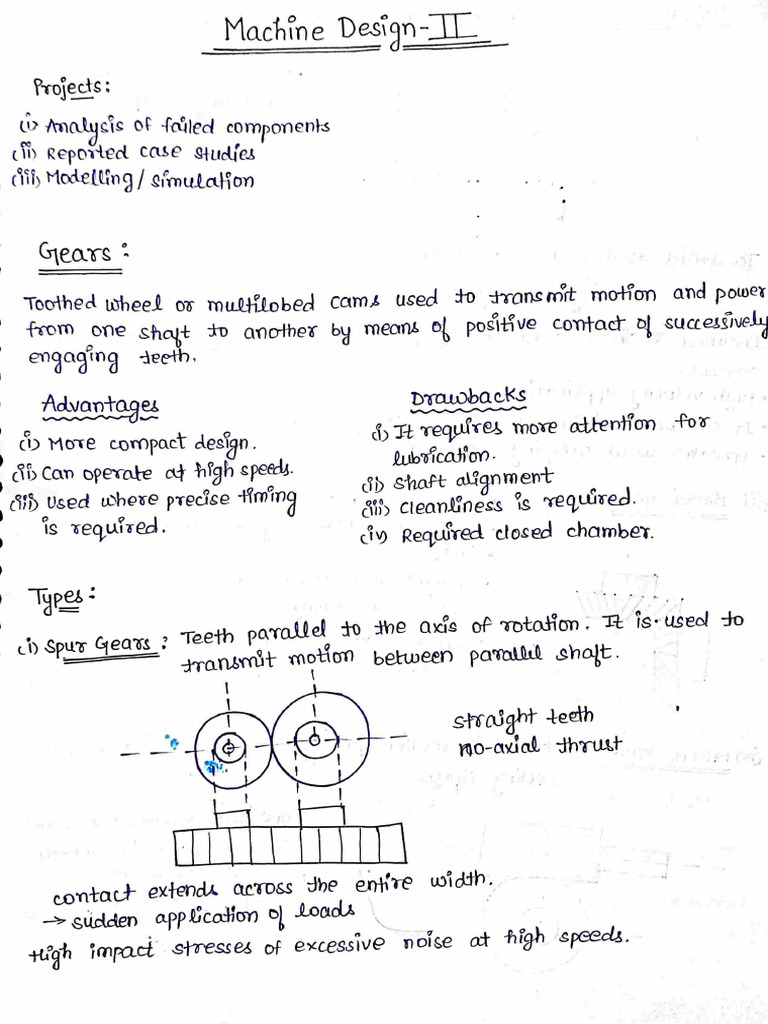 Machine Design-II
Projects:
(i) Analysis of failed components
(ii) Reported case studies
(iii) Modelling/simulation
Gears:
Toothed wheel or multilobed cams used to transmit motion and power
from one shaft to another by means of positive contact of successively
engaging teeth.
Advantages
(i) More compact design.
(ii) Can operate at high speeds.
(iii) Used where precise timing
is required.
Drawbacks
(i) It requires more attention for
lubrication.
(ii) Shaft alignment
(iii) Cleanliness is required.
(iv) Required closed chamber.
Types:
(i) Spur Gears: Teeth parallel to the axis of rotation. It is used to
transmit motion between parallel shaft.
straight teeth
no-axial thrust
contact extends across the entire width.
→ sudden application of loads
High impact stresses of excessive noise at high speeds.